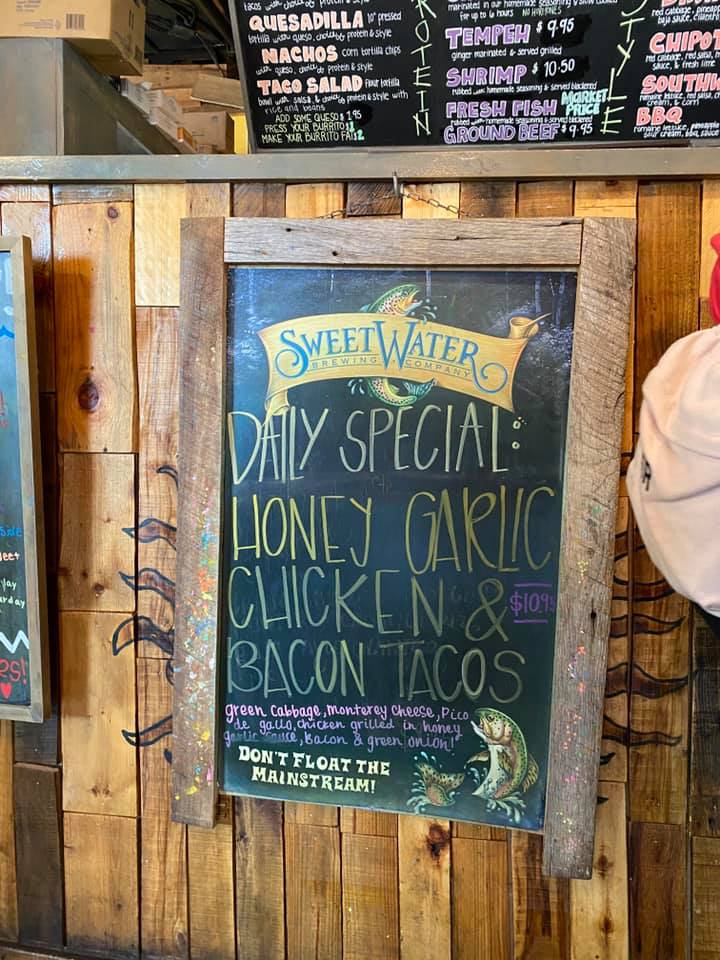 QUESADILLA 10" pressed
tortilla with queso, choice of protein & style
NACHOS corn tortilla chips
with queso, choice of protein & style
TACO SALAD flour tortilla
bowl with salsa, & choice of protein & style with
rice and beans
ADD SOME QUESO $1.95
PRESS YOUR BURRITO $1
MAKE YOUR BURRITO FAT $2
marinated in our homemade seasoning
for up to 6 hours
TEMPEH $9.95
ginger marinated & served grilled
SHRIMP $10.50
rubbed with homemade seasoning & served blackened
FRESH FISH MARKET PRICE
rubbed with homemade seasoning & served blackened
GROUND BEEF $9.95
CHIPOT
sauce, & fresh lime
SOUTHW
cream, & corn
BBQ
romaine lettuce, pineapple
sour cream, bbq sauce
SWEETWATER
BREWING COMPANY
DAILY SPECIAL:
HONEY GARLIC
CHICKEN & $10.95
BACON TACOS
green cabbage, monterey cheese, Pico
de gallo, chicken grilled in honey
garlic sauce, Bacon & green onion!
DON'T FLOAT THE
MAINSTREAM!